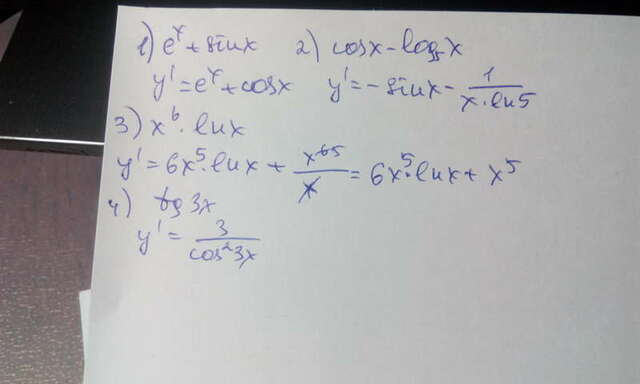 1) eˣ + sinx 2) cosx - log₅x
y' = eˣ + cosx y' = - sinx - 1/(x·ln5)
3) x⁶ · lnx
y' = 6x⁵ · lnx + x⁶⁵/x = 6x⁵ · lnx + x⁵
4) tg 3x
y' = 3/(cos²3x)